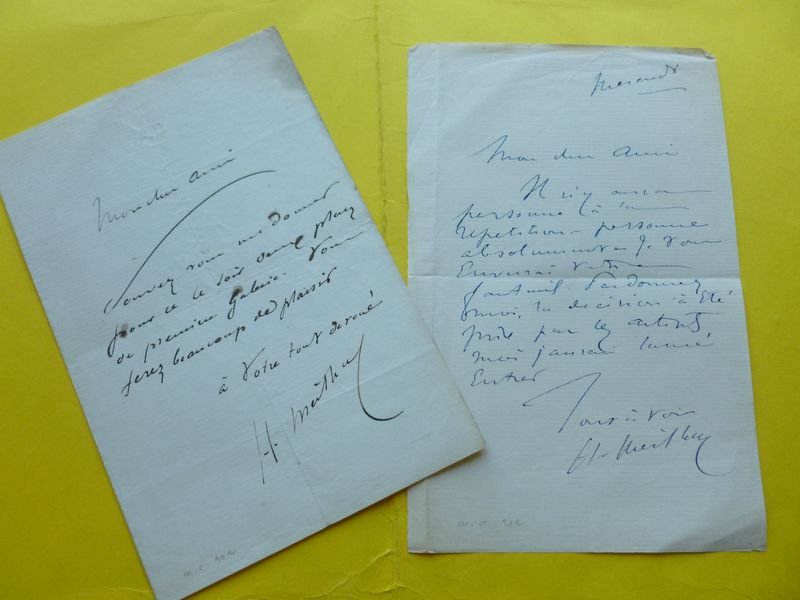 Mon cher ami
Pouvez vous me donner
pour ce soir deux places
de première galerie. Vous
ferez beaucoup de plaisir
à votre tout dévoué
H. Meilhac
Mercredi
Mon cher ami
Il n'y aura
personne à la
répétition - personne
absolument - Je vous
Enverrai votre
fauteuil. Pardonnez
moi, la décision a été
prise par les artistes,
mais j'aurais laissé
Entrer
Tout à vous
H. Meilhac